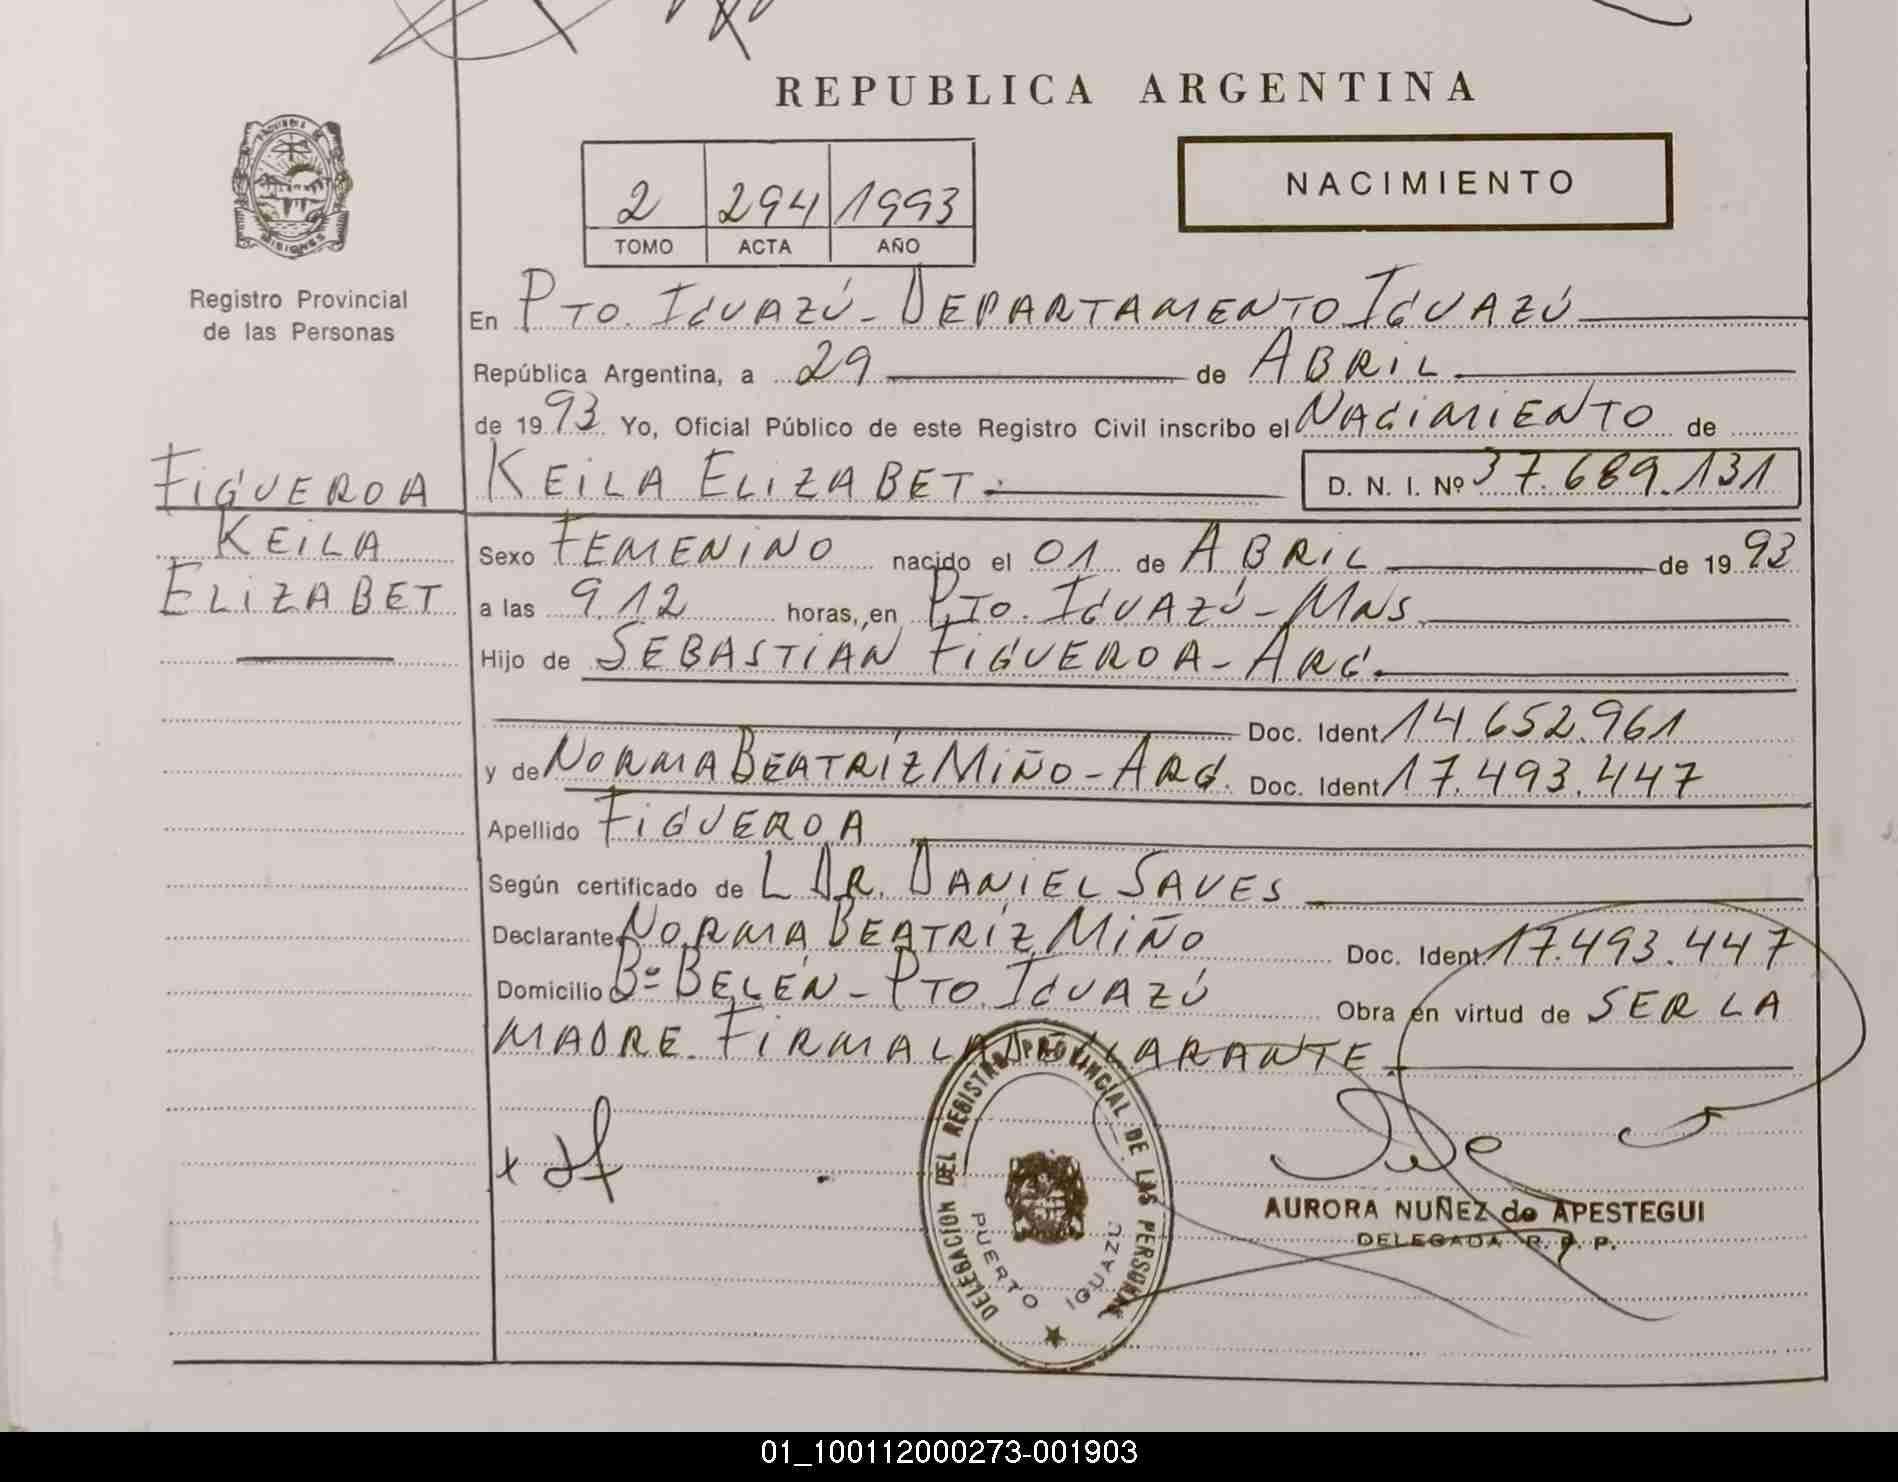 REPUBLICA ARGENTINA
PROVINCIA DE
MISIONES
Registro Provincial
de las Personas
2 294 1993
TOMO ACTA AÑO
NACIMIENTO
En PTO. IGUAZÚ - DEPARTAMENTO IGUAZÚ
República Argentina, a 29 de ABRIL
de 19 93 Yo, Oficial Público de este Registro Civil inscribo el NACIMIENTO de
KEILA ELIZABET.- D. N. I. Nº 37.689.131
FIGUEROA
KEILA
ELIZABET
Sexo FEMENINO nacido el 01 de ABRIL de 19 93
a las 9.12 horas, en PTO. IGUAZÚ - MNS.
Hijo de SEBASTIAN FIGUEROA - ARG.
Doc. Ident 14.652.961
y de NORMA BEATRÍZ MIÑO - ARG. Doc. Ident 17.493.447
Apellido FIGUEROA
Según certificado de L DR. DANIEL SAVES
Declarante NORMA BEATRÍZ MIÑO Doc. Ident. 17.493.447
Domicilio Bº BELÉN - PTO. IGUAZÚ Obra en virtud de SER LA
MADRE. FIRMA LA DECLARANTE.
DELEGACION DEL REGISTRO PROVINCIAL DE LAS PERSONAS
PUERTO IGUAZU
AURORA NUÑEZ de APESTEGUI
DELEGADA R. P. P.
01_100112000273-001903